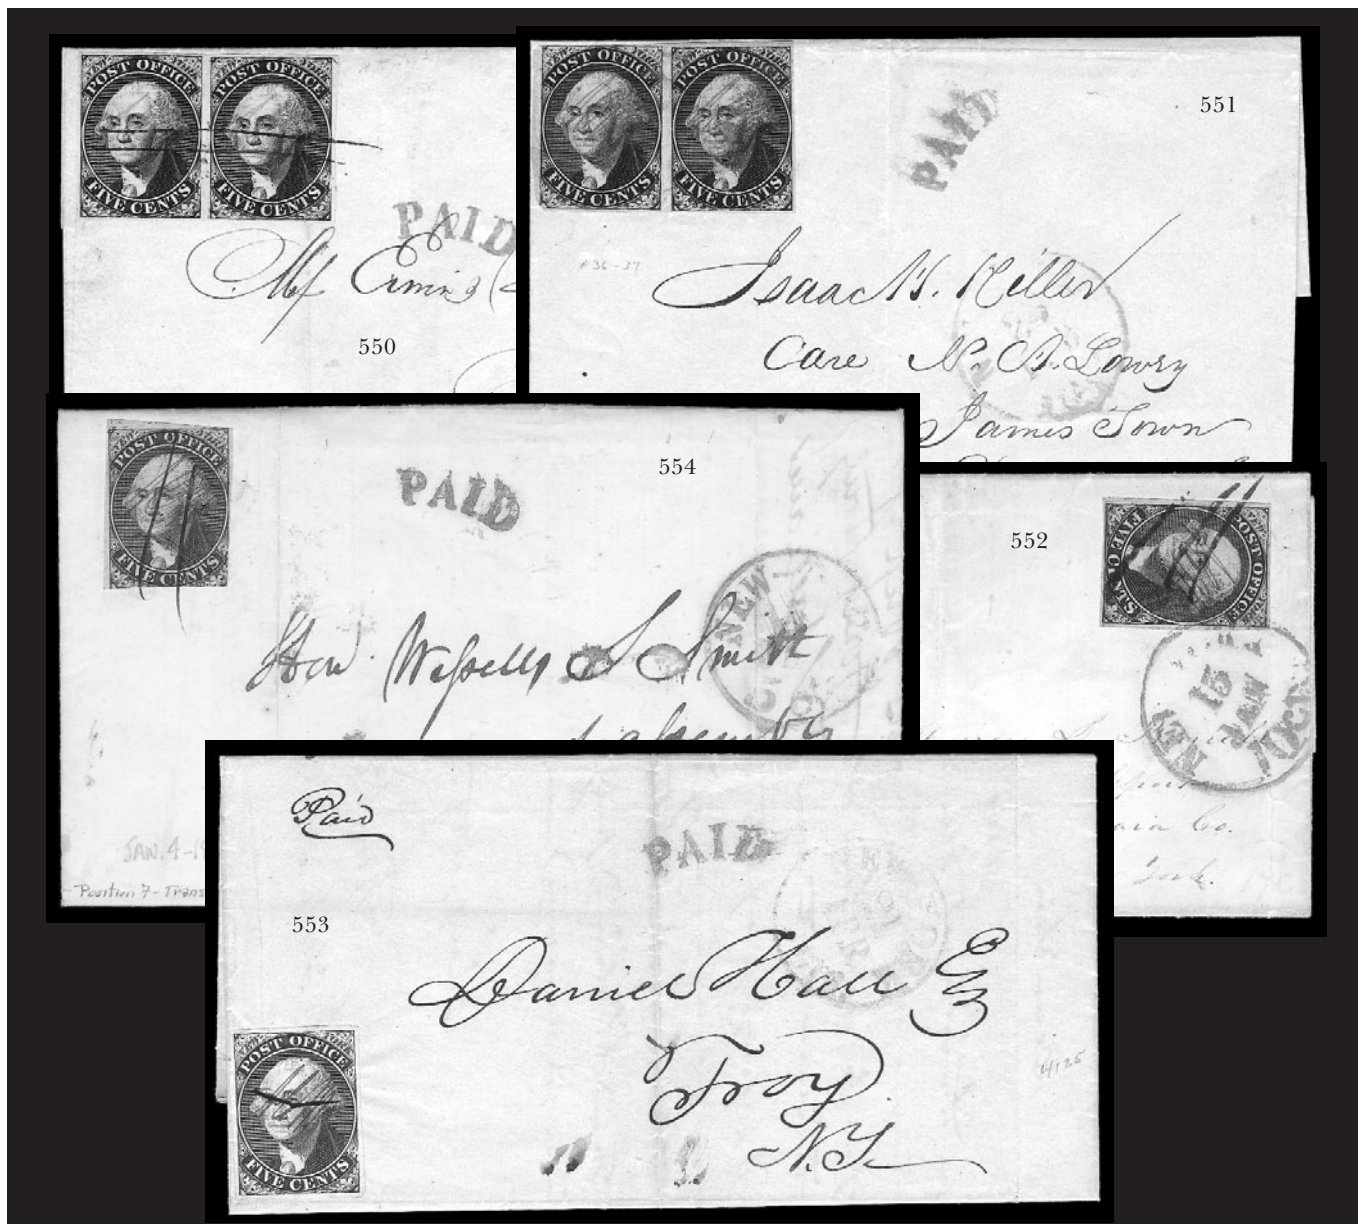 POST OFFICE POST OFFICE
FIVE CENTS FIVE CENTS
PAID
550
POST OFFICE POST OFFICE
FIVE CENTS FIVE CENTS
PAID
551
#36-37
Isaac H. Keller
Care N. A. Lowry
James Town
POST OFFICE
FIVE CENTS
PAID
554
NEW
Hon Wessells S Smith
JAN. 4-18
Position 7 - Trans
552
POST OFFICE
FIVE CENTS
NEW YORK
15
JAN
Co.
York.
Paid
PAID
553
Daniel Hall Esq
Troy
N.Y.
4125
POST OFFICE
FIVE CENTS